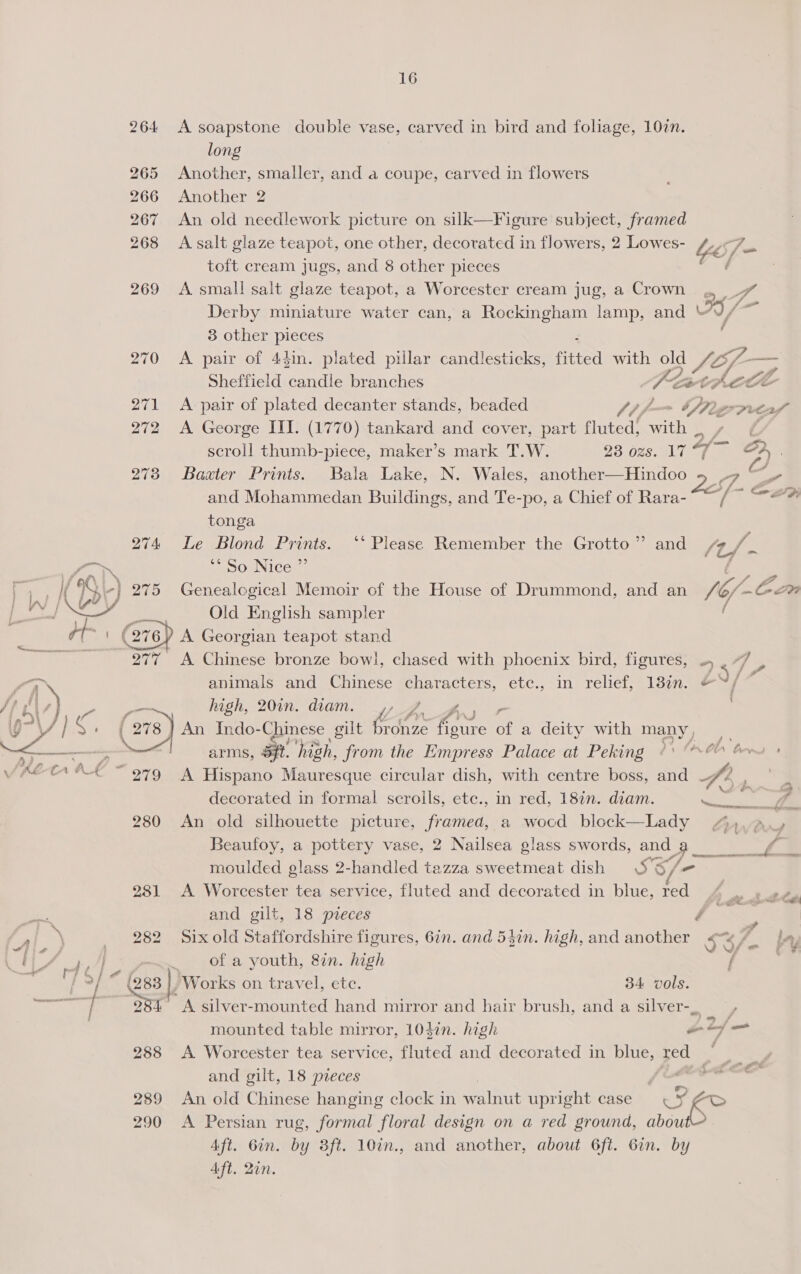 16
264 A soapstone double vase, carved in bird and foliage, 10in.
long
265 Another, smaller, and a coupe, carved in flowers
266 Another 2
267 An old needlework picture on silk—Figure subject, framed
268 A salt glaze teapot, one other, decorated in flowers, 2 Lowes-
toft cream jugs, and 8 other pieces
269 A small salt glaze teapot, a Worcester cream jug, a Crown
Derby miniature water can, a Rockingham lamp, and
3 other pieces
270 A pair of 4½in. plated pillar candlesticks, fitted with old
Sheffield candle branches
271 A pair of plated decanter stands, beaded
272 A George III. (1770) tankard and cover, part fluted, with
scroll thumb-piece, maker's mark T.W. 23 ozs. 17
273 Baxter Prints. Bala Lake, N. Wales, another—Hindoo
and Mohammedan Buildings, and Te-po, a Chief of Rara-
tonga
274 Le Blond Prints. “Please Remember the Grotto” and
“So Nice”
275 Genealogical Memoir of the House of Drummond, and an
Old English sampler
276 A Georgian teapot stand
277 A Chinese bronze bowl, chased with phoenix bird, figures,
animals and Chinese characters, etc., in relief, 13in.
high, 20in. diam.
278 An Indo-Chinese gilt bronze figure of a deity with many
arms, ft. high, from the Empress Palace at Peking
279 A Hispano Mauresque circular dish, with centre boss, and
decorated in formal scrolls, etc., in red, 18in. diam.
280 An old silhouette picture, framed, a wood block—Lady
Beaufoy, a pottery vase, 2 Nailsea glass swords, and a
moulded glass 2-handled tazza sweetmeat dish
281 A Worcester tea service, fluted and decorated in blue, red
and gilt, 18 pieces
282 Six old Staffordshire figures, 6in. and 5½in. high, and another
of a youth, 8in. high
283 Works on travel, etc. 34 vols.
284 A silver-mounted hand mirror and hair brush, and a silver-
mounted table mirror, 10½in. high
288 A Worcester tea service, fluted and decorated in blue, red
and gilt, 18 pieces
289 An old Chinese hanging clock in walnut upright case
290 A Persian rug, formal floral design on a red ground, about
4ft. 6in. by 3ft. 10in., and another, about 6ft. 6in. by
4ft. 2in.